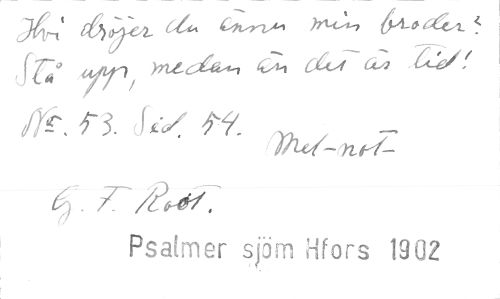 Hvi dröjer du ännu min broder?
Stå upp, medan än det är tid!
No. 53. Sid. 54.
Mel-not-
G. F. Root.
Psalmer sjöm Hfors 1902